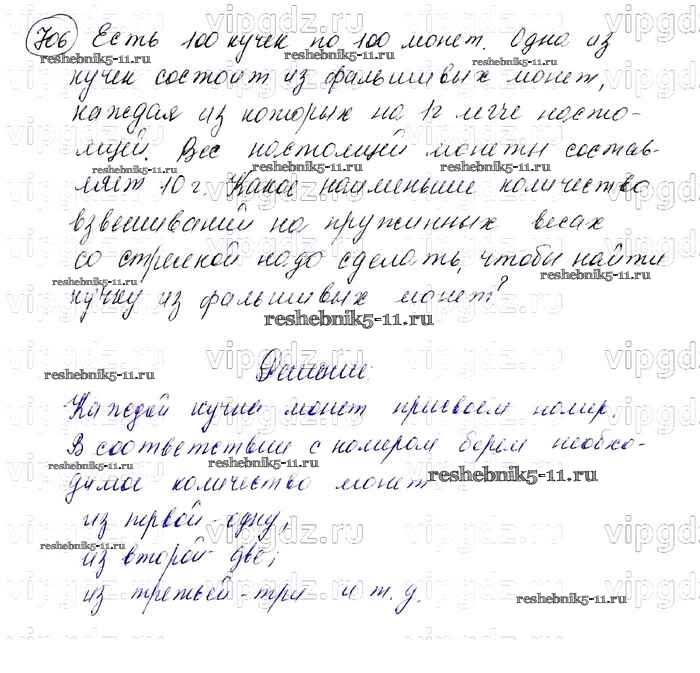 706 Есть 100 кучек по 100 монет. Одна из
кучек состоит из фальшивых монет,
каждая из которых на 1г легче насто-
ящей. Вес настоящей монеты состав-
ляет 10 г. Какое наименьшее количество
взвешиваний на пружинных весах
со стрелкой надо сделать, чтобы найти
кучку из фальшивых монет?
Решение:
Каждой кучке монет присвоем номер.
В соответствии с номером берем необхо-
димое количество монет
из первой - одну;
из второй - две;
из третьей - три и т.д.
reshebnik5-11.ru
vipgdz.ru